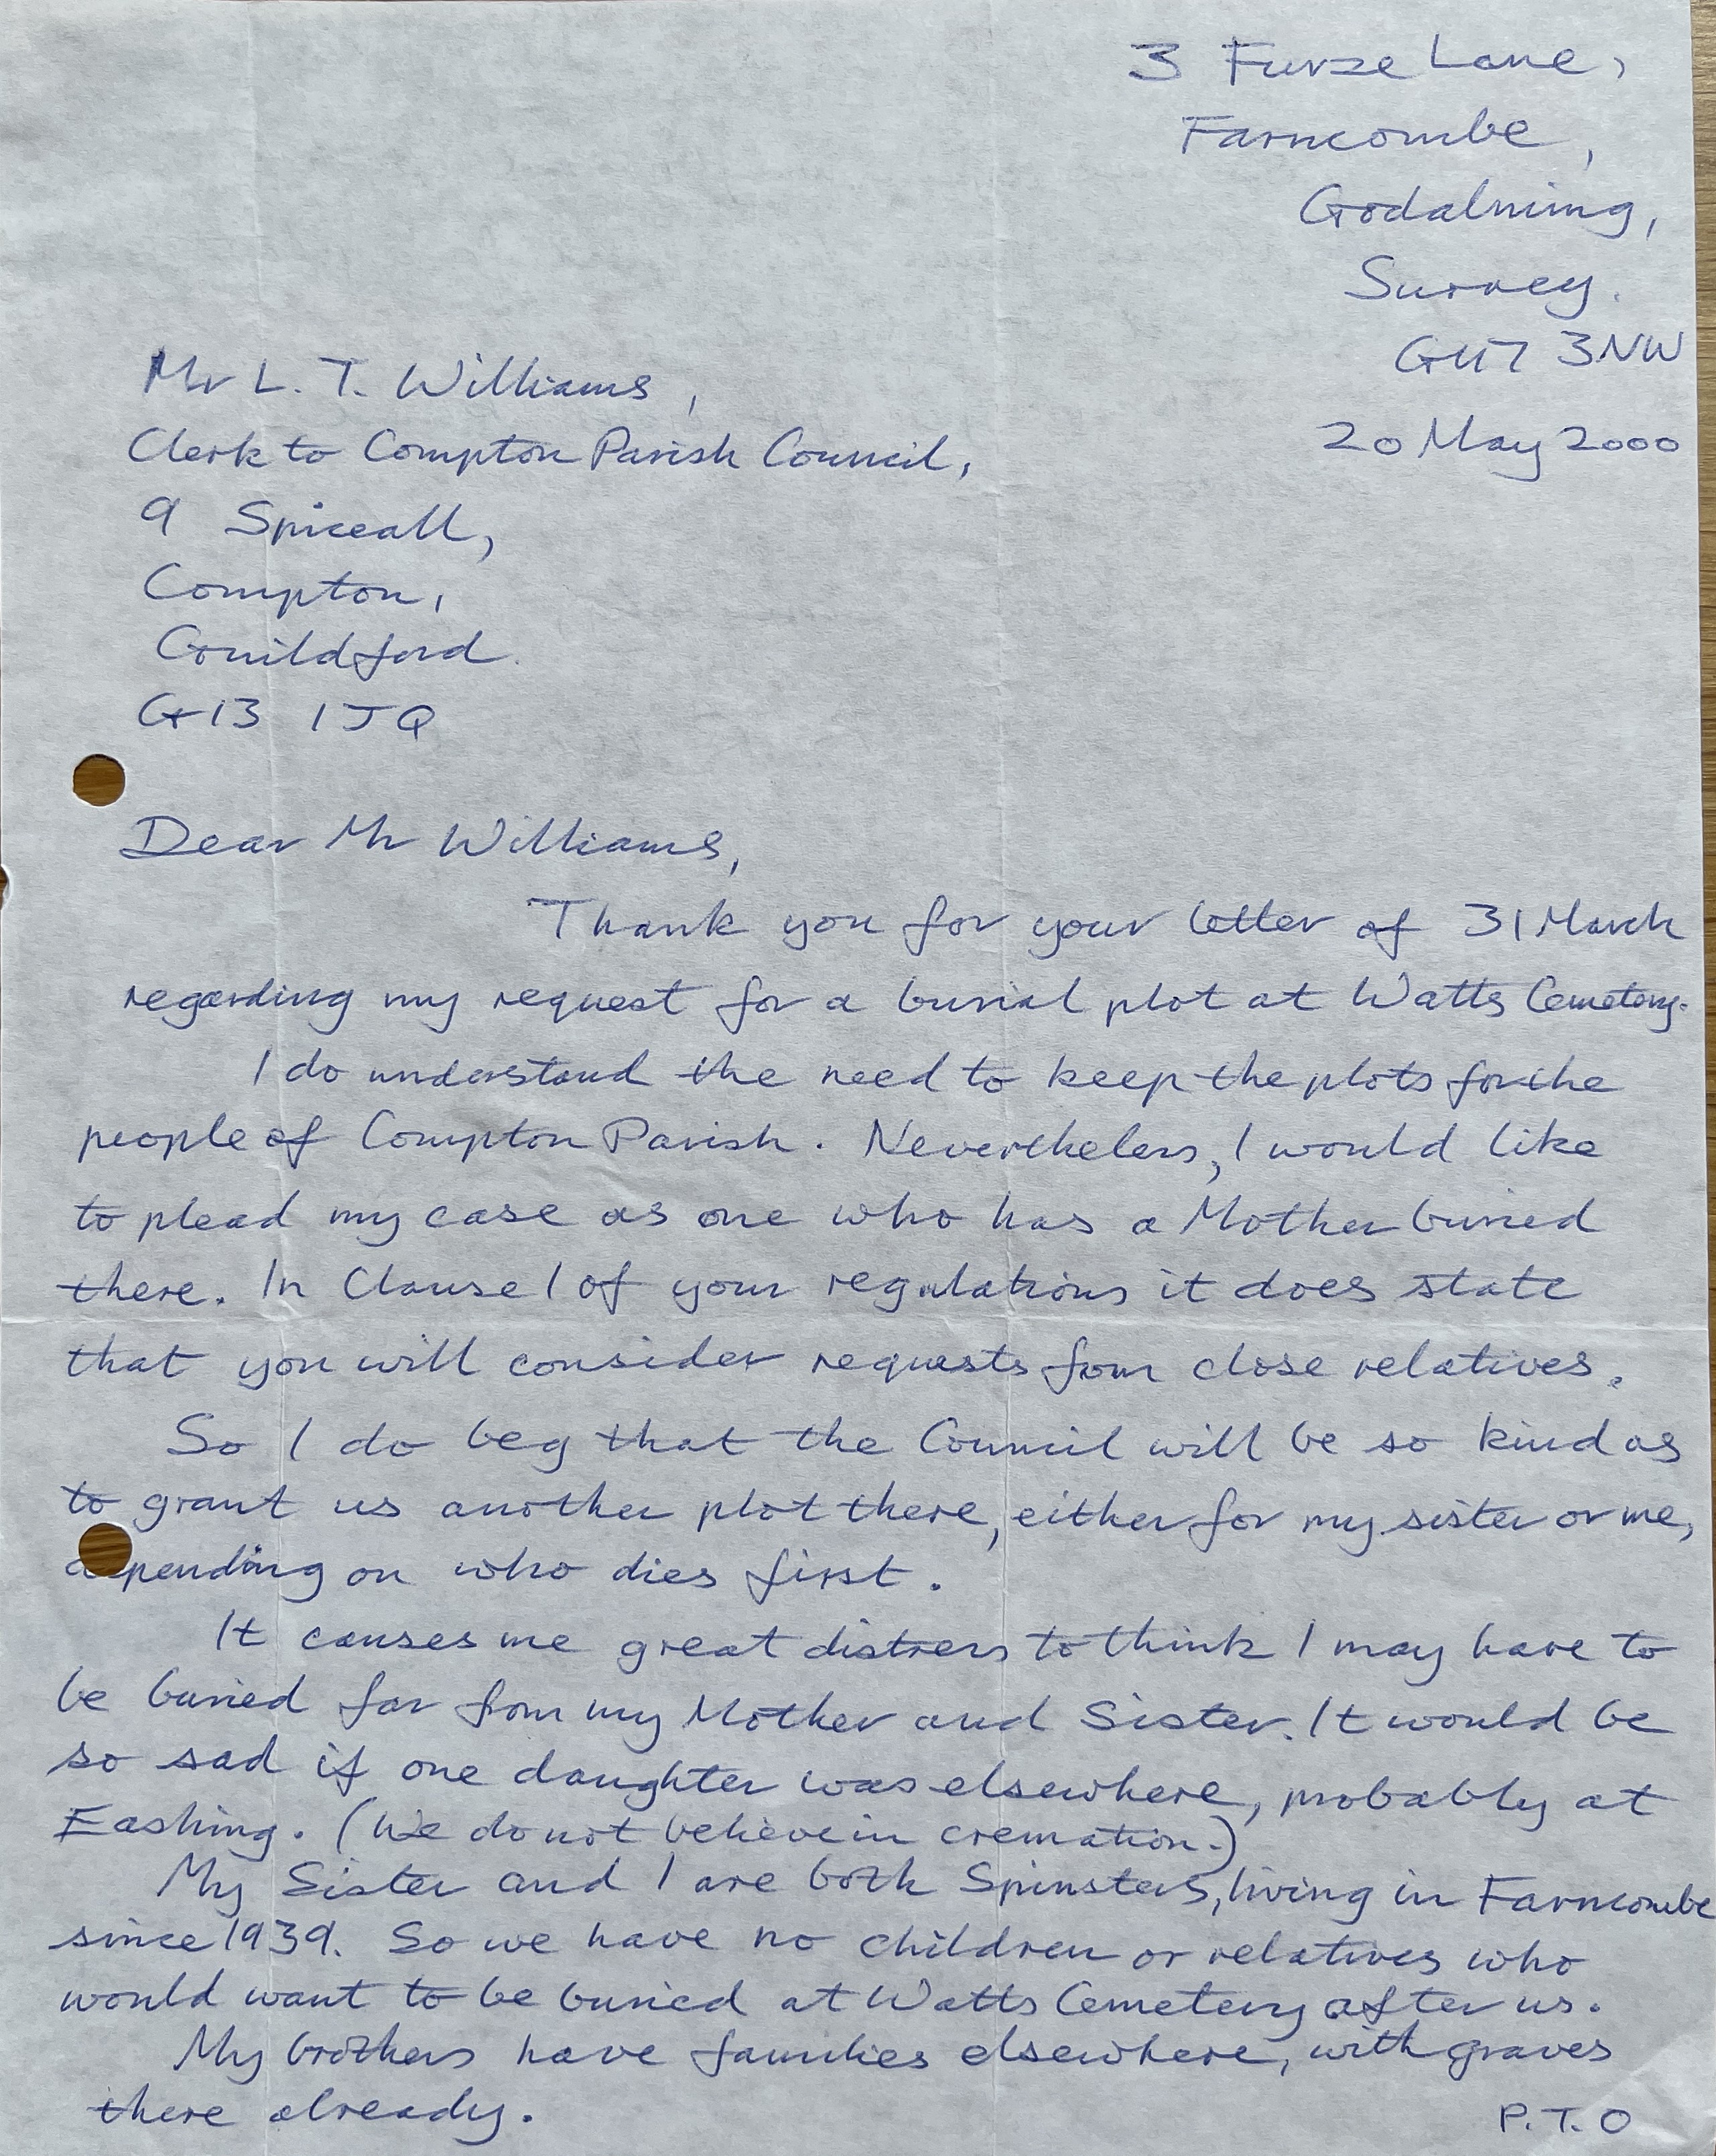 3 Furze Lane,
Farncombe,
Godalming,
Surrey.
GU7 3NW
20 May 2000
Mr L. T. Williams,
Clerk to Compton Parish Council,
9 Spiceall,
Compton,
Guildford.
G13 1JQ
Dear Mr Williams,
Thank you for your letter of 31 March
regarding my request for a burial plot at Watts Cemetery.
I do understand the need to keep the plots for the
people of Compton Parish. Nevertheless, I would like
to plead my case as one who has a Mother buried
there. In Clause 1 of your regulations it does state
that you will consider requests from close relatives.
So I do beg that the Council will be so kind as
to grant us another plot there, either for my sister or me,
depending on who dies first.
It causes me great distress to think I may have to
be buried far from my Mother and Sister. It would be
so sad if one daughter was elsewhere, probably at
Eashing. (We do not believe in cremation.)
My Sister and I are both Spinsters, living in Farncombe
since 1939. So we have no children or relatives who
would want to be buried at Watts Cemetery after us.
My brothers have families elsewhere, with graves
there already.
P.T.O